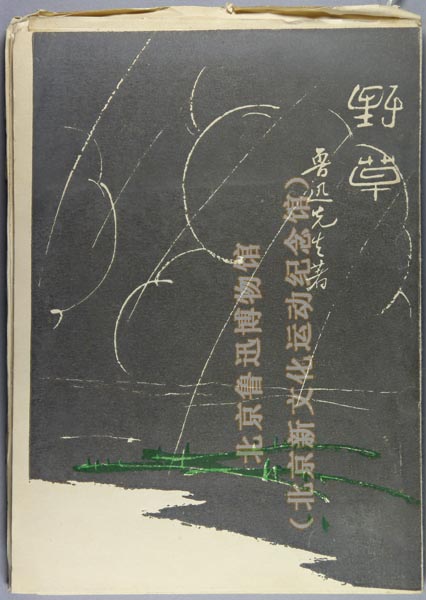 野草
鲁迅先生著
北京鲁迅博物馆
（北京新文化运动纪念馆）